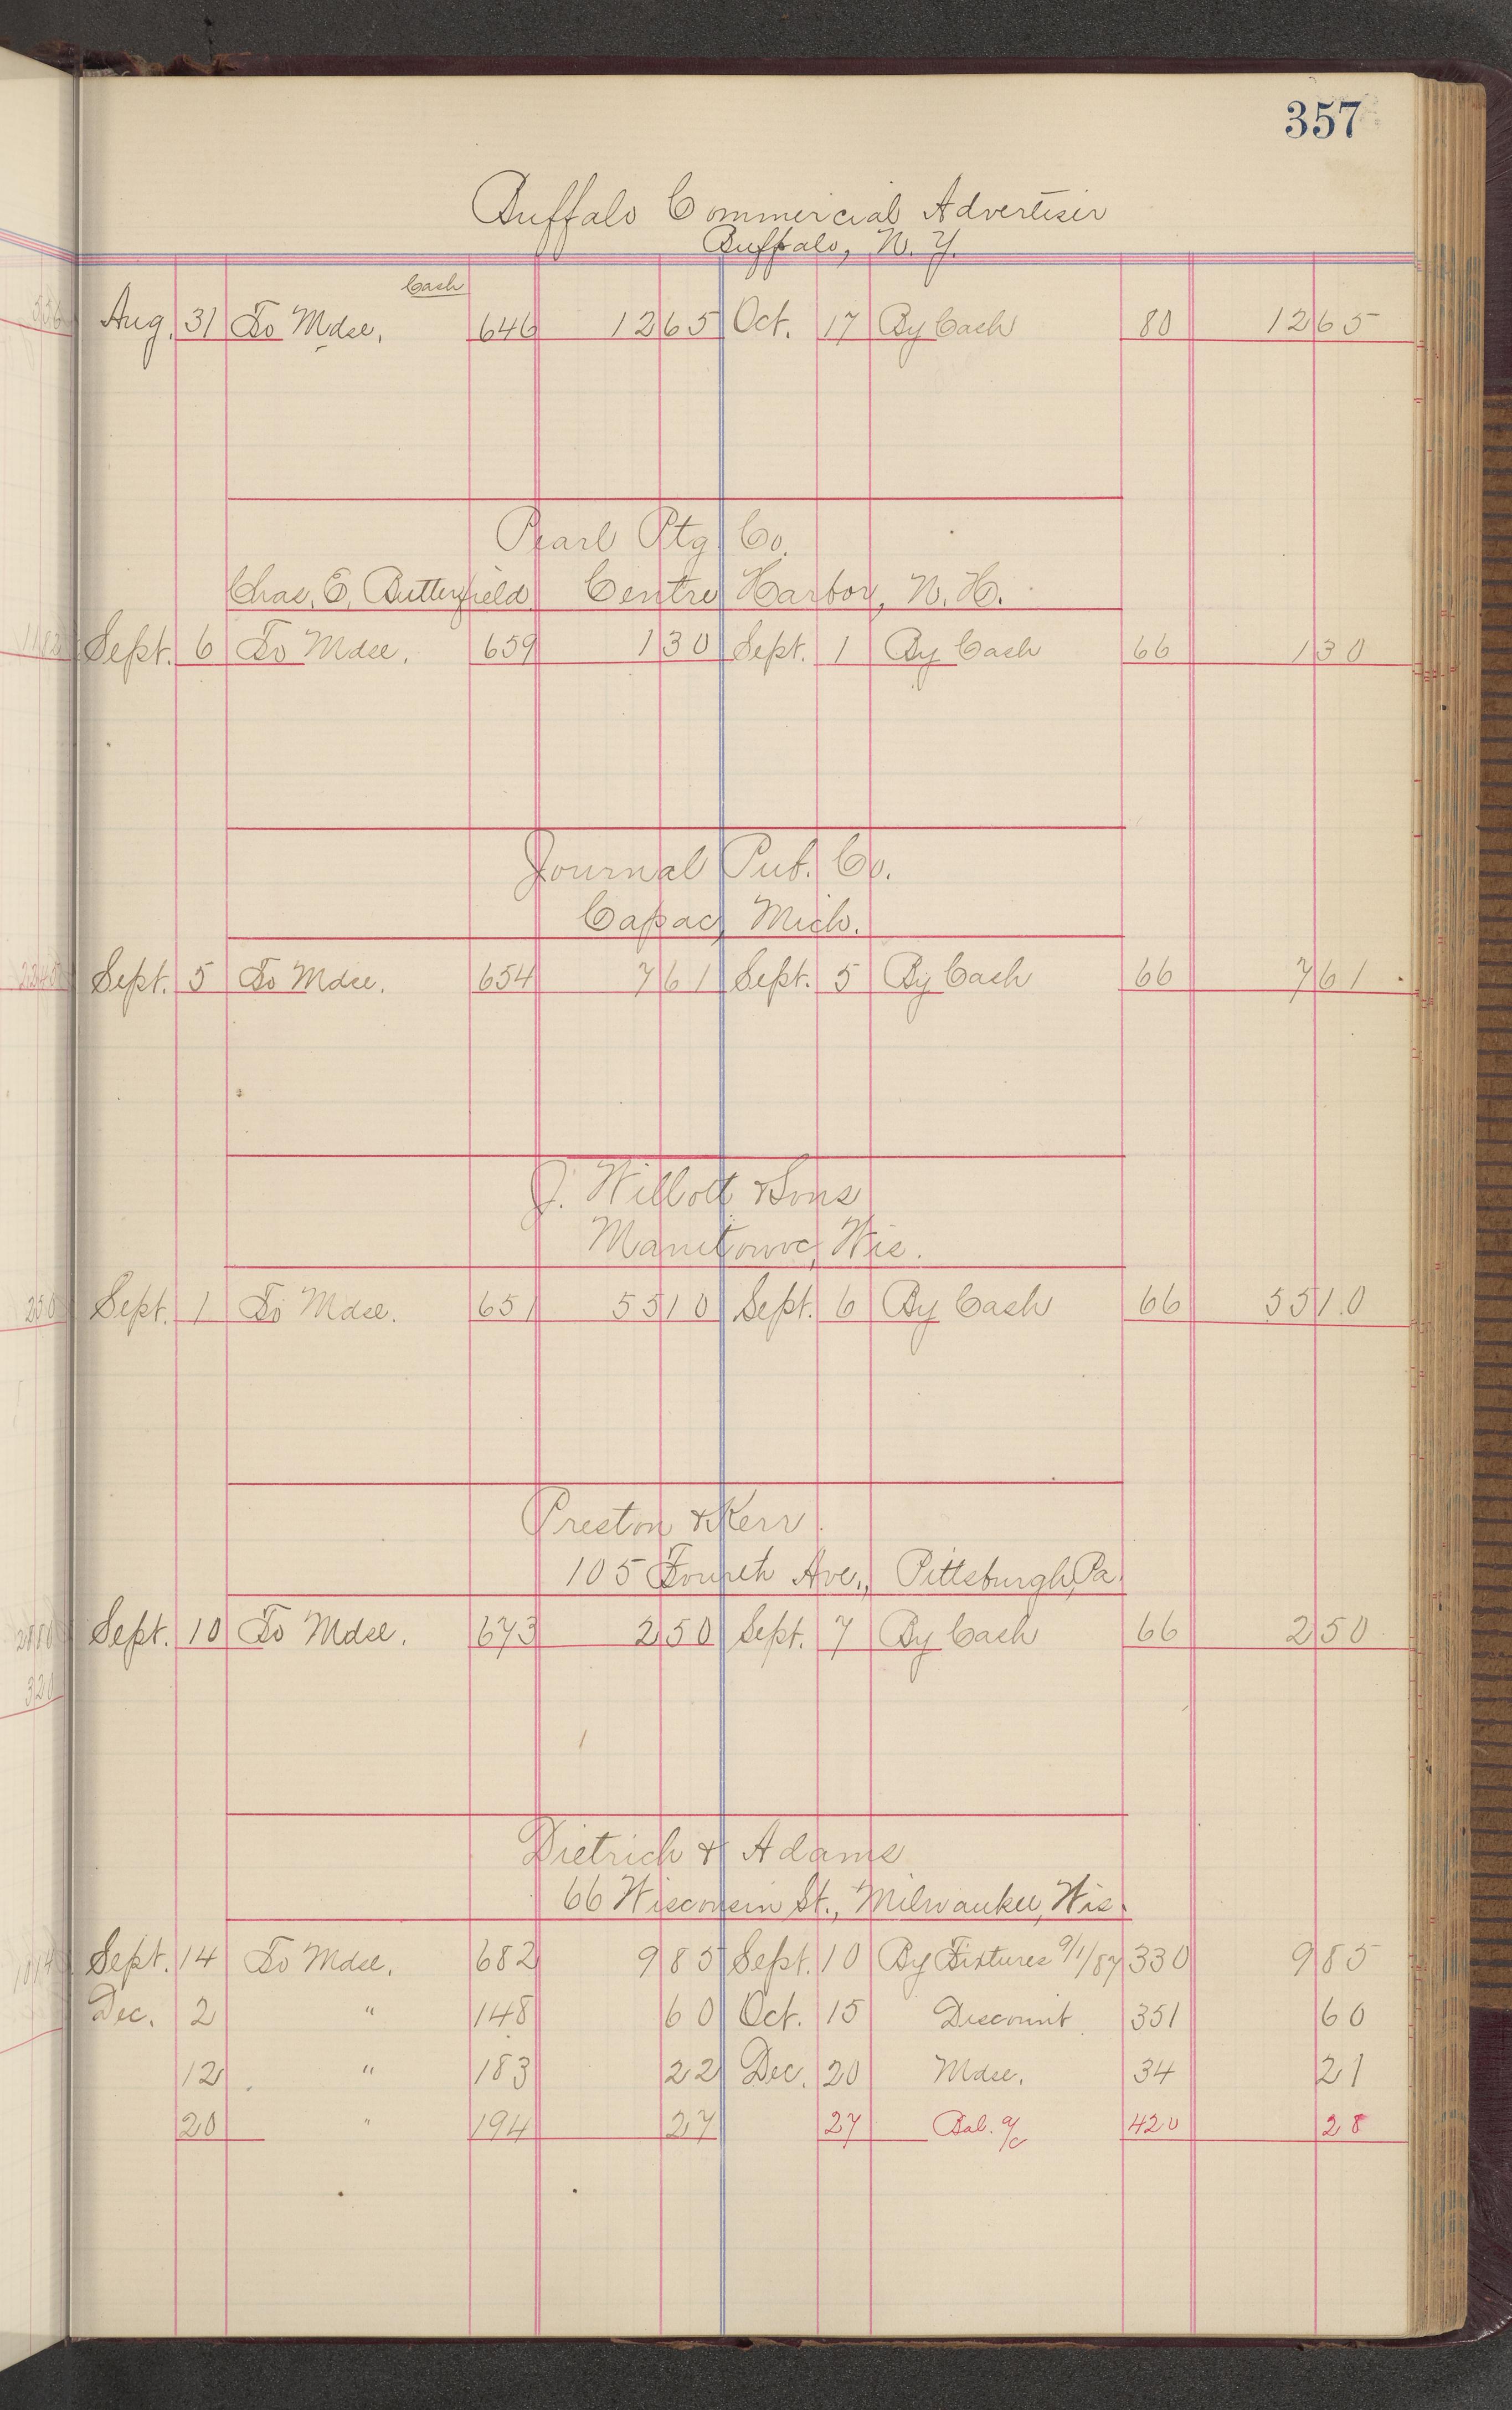 357
Buffalo Commercial Advertiser
Buffalo, N. Y.
Cash
Aug. 31 To Mdse. 646 12 65 Oct. 17 By Cash 80 12 65
Pearl Ptg. Co.
Chas. E. Butterfield Centre Harbor, N. H.
Sept. 6 To Mdse. 659 1 30 Sept. 1 By Cash 66 1 30
Journal Pub. Co.
Capac, Mich.
Sept. 5 To Mdse. 654 7 61 Sept. 5 By Cash 66 7 61
J. Willott & Sons
Manitowoc, Wis.
Sept. 1 To Mdse. 651 55 10 Sept. 6 By Cash 66 55 10
Preston & Kerr
105 Fourth Ave., Pittsburgh, Pa.
Sept. 10 To Mdse. 673 2 50 Sept. 7 By Cash 66 2 50
Dietrich & Adams
66 Wisconsin St., Milwaukee, Wis.
Sept. 14 To Mdse. 682 9 85 Sept. 10 By Fixtures 9/1/87 330 9 85
Dec. 2 " 148 60 Oct. 15 Discount 351 60
12 " 183 22 Dec. 20 Mdse. 34 21
20 " 194 27 27 Bal. a/c 420 28